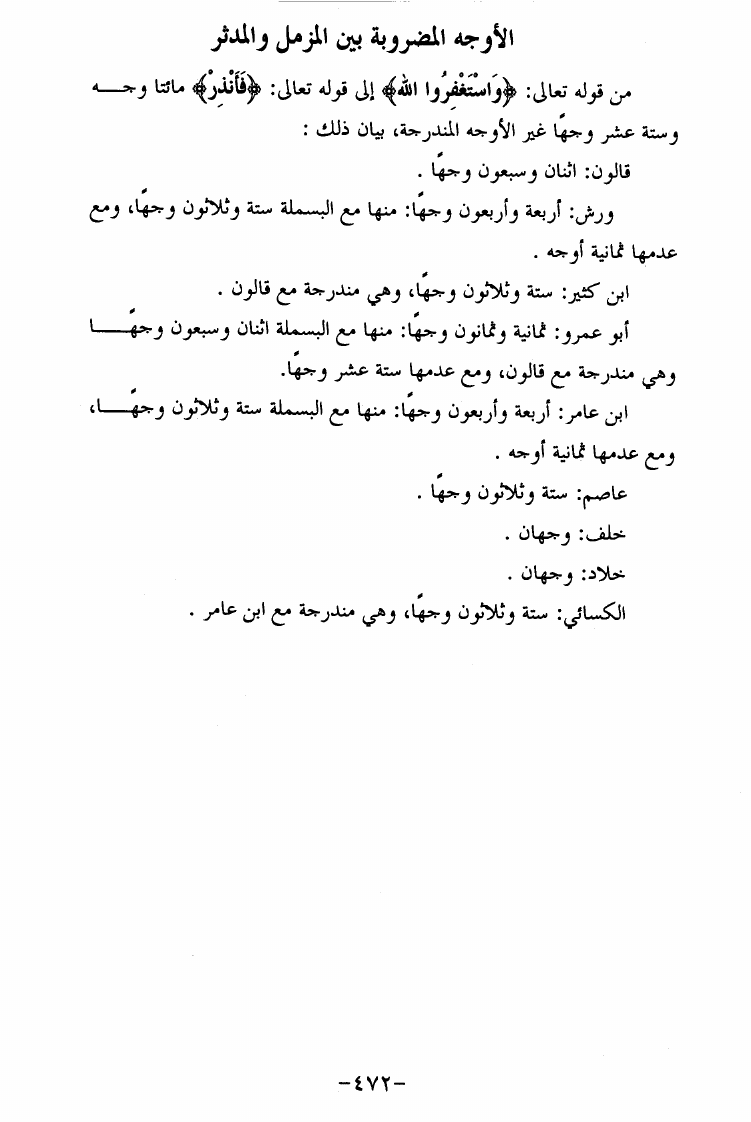 الأوجه المضروبة بين المزمل والمدثر
من قوله تعالى: ﴿وَاسْتَغْفِرُوا اللهَ﴾ إلى قوله تعالى: ﴿فَأَنْذِرْ﴾ مائتا وجـــه
وستة عشر وجهًا غير الأوجه المندرجة، بيان ذلك :
قالون: اثنان وسبعون وجهًا .
ورش: أربعة وأربعون وجهًا: منها مع البسملة ستة وثلاثون وجهًا، ومع
عدمها ثمانية أوجه .
ابن كثير: ستة وثلاثون وجهًا، وهي مندرجة مع قالون .
أبو عمرو: ثمانية وثمانون وجهًا: منها مع البسملة اثنان وسبعون وجهًـــا
وهي مندرجة مع قالون، ومع عدمها ستة عشر وجهًا.
ابن عامر: أربعة وأربعون وجهًا: منها مع البسملة ستة وثلاثون وجهًـــا،
ومع عدمها ثمانية أوجه .
عاصم: ستة وثلاثون وجهًا .
خلف: وجهان .
خلاد: وجهان .
الكسائي: ستة وثلاثون وجهًا، وهي مندرجة مع ابن عامر .
-٤٧٢-